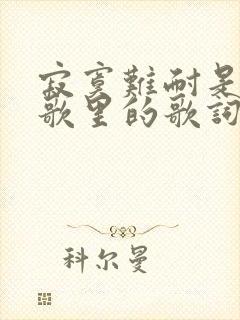 寂寞難耐是
歌里的歌詞
科尔曼